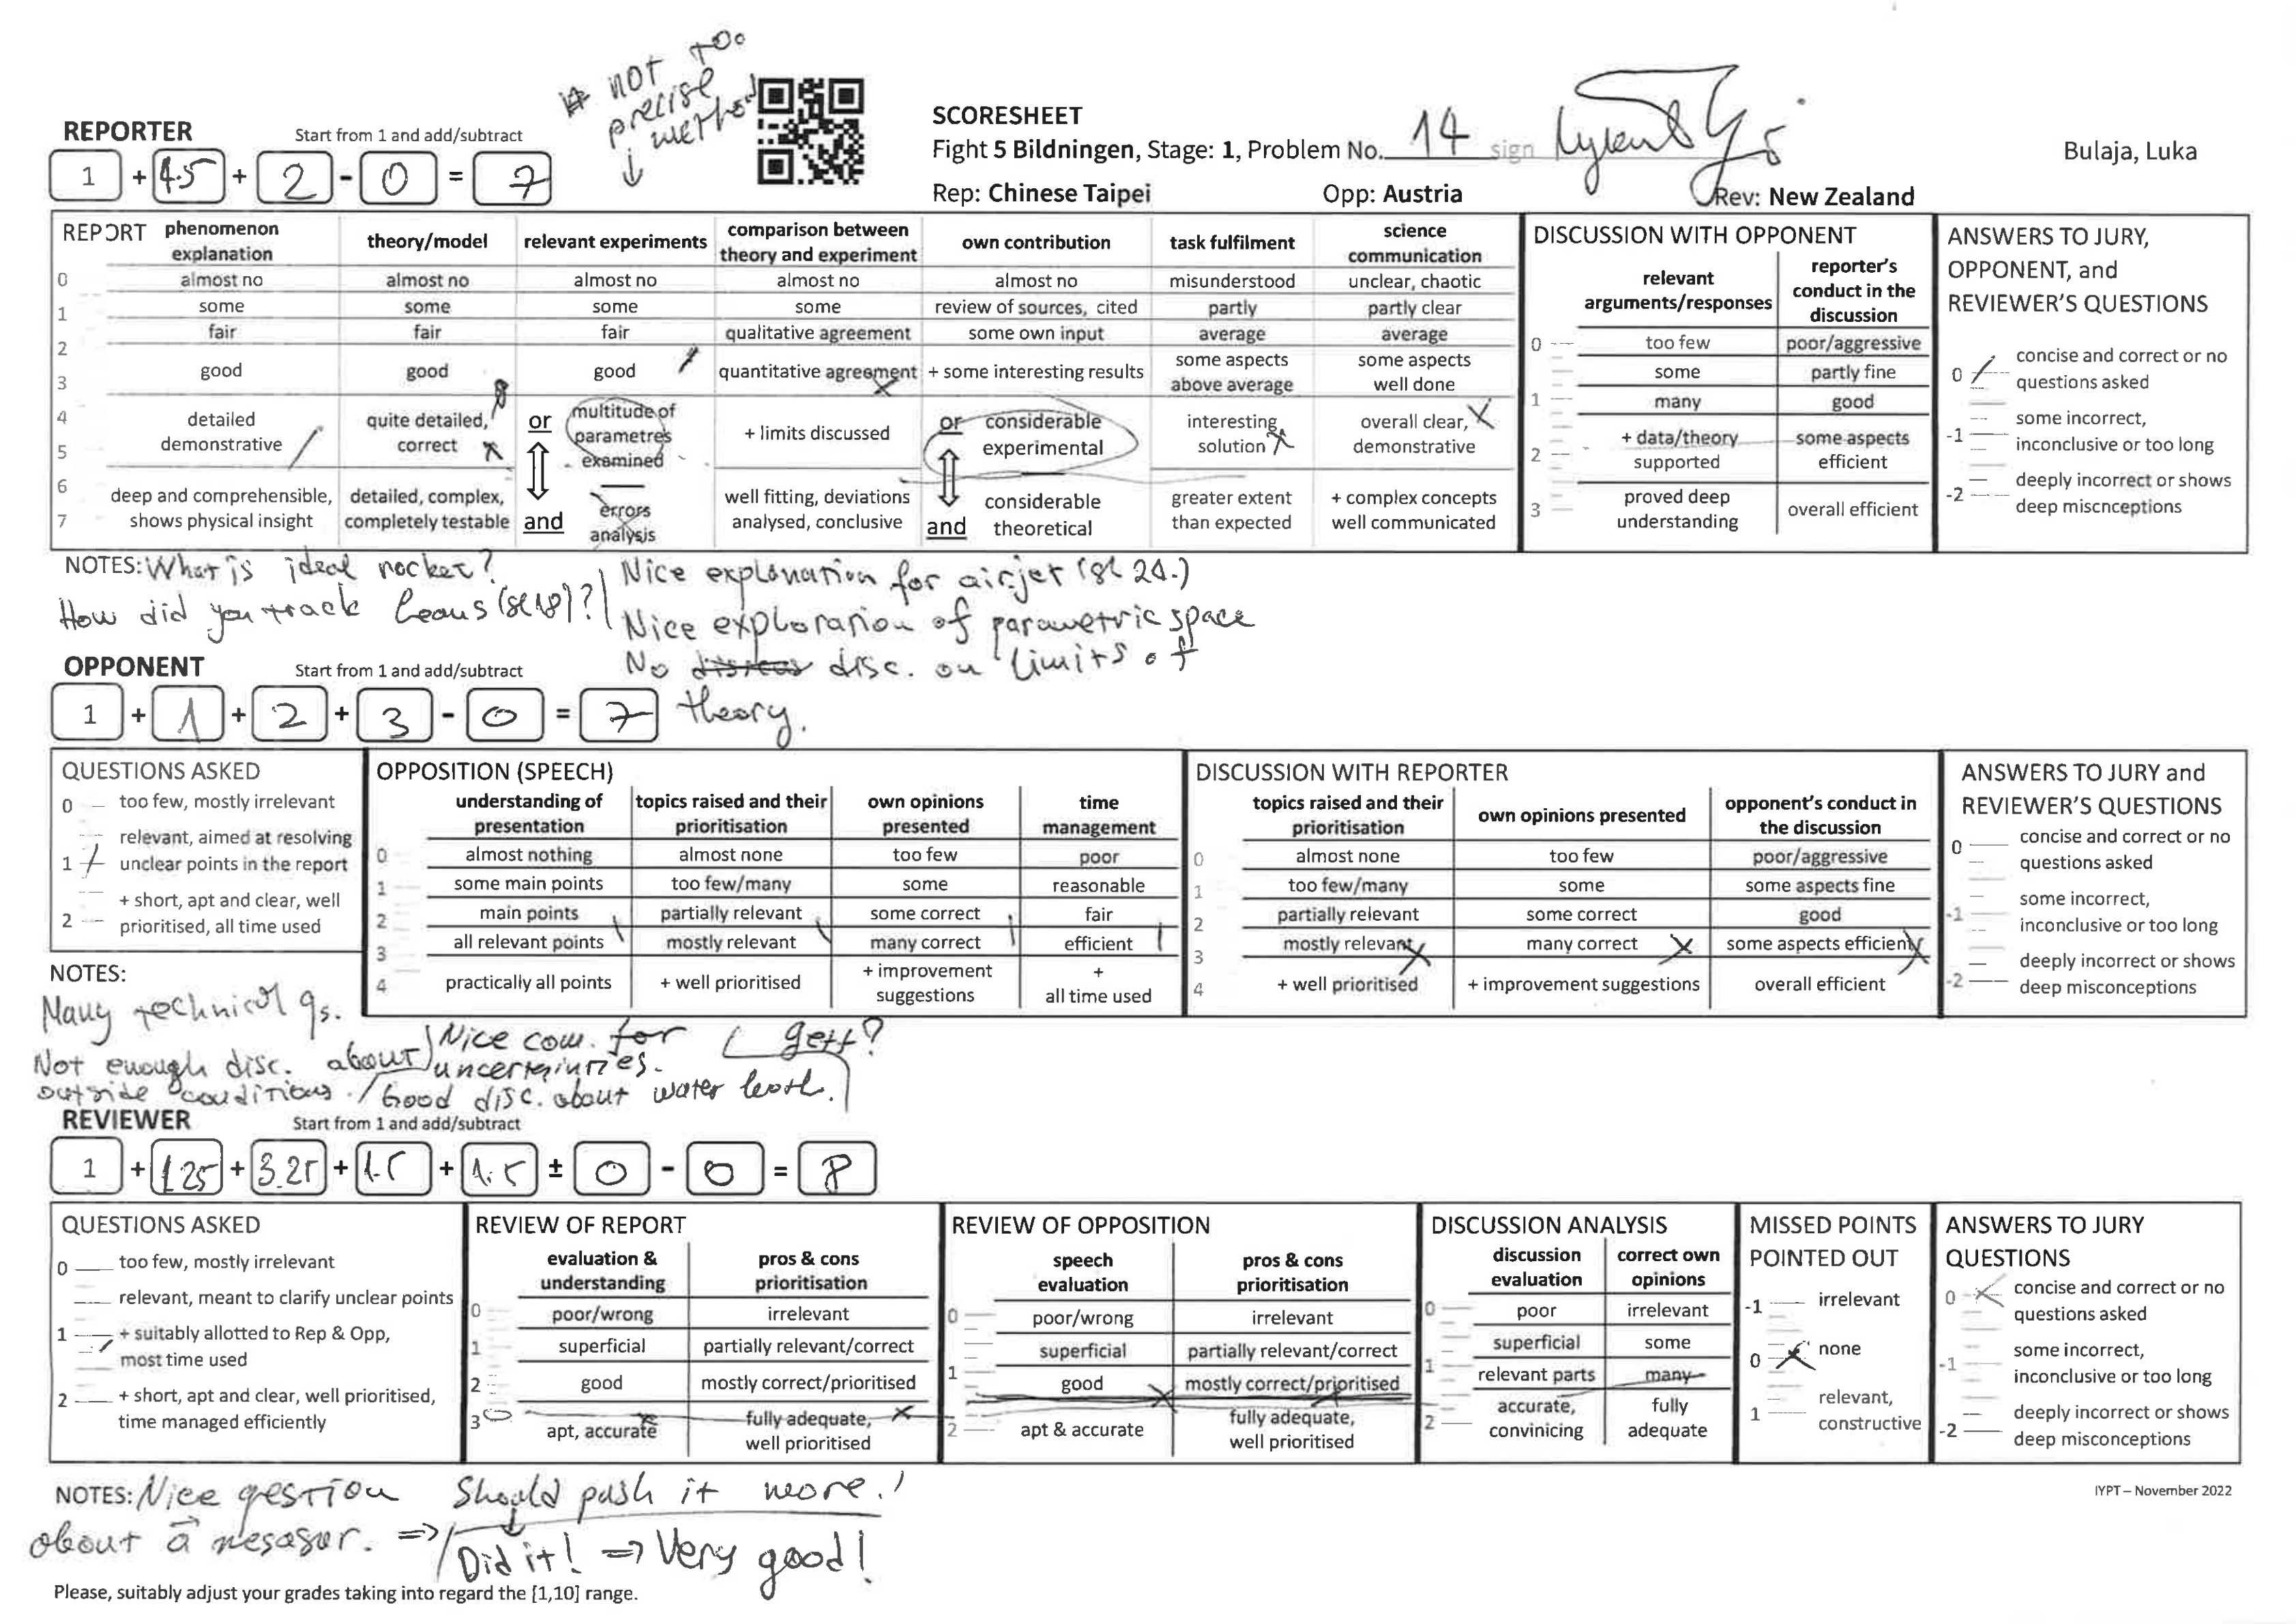 * not too
precise
method
SCORESHEET
REPORTER Start from 1 and add/subtract
Fight 5 Bildningen, Stage: 1, Problem No. 14 sign
Bulaja, Luka
1 + 4.5 + 2 - 0 = 7
Rep: Chinese Taipei Opp: Austria Rev: New Zealand
REPORT
phenomenon explanation
theory/model
relevant experiments
comparison between theory and experiment
own contribution
task fulfilment
science communication
0 almost no almost no almost no almost no almost no misunderstood unclear, chaotic
1 some some some some review of sources, cited partly partly clear
2 fair fair fair qualitative agreement some own input average average
3 good good good quantitative agreement + some interesting results some aspects above average some aspects well done
4 detailed demonstrative quite detailed, correct or multitude of parametres examined + limits discussed or considerable experimental interesting solution overall clear, demonstrative
5
6 deep and comprehensible, shows physical insight detailed, complex, completely testable and errors analysis well fitting, deviations analysed, conclusive and considerable theoretical greater extent than expected + complex concepts well communicated
7
DISCUSSION WITH OPPONENT
relevant arguments/responses
reporter's conduct in the discussion
0 too few poor/aggressive
some partly fine
1 many good
2 + data/theory supported some aspects efficient
3 proved deep understanding overall efficient
ANSWERS TO JURY,
OPPONENT, and
REVIEWER'S QUESTIONS
0 concise and correct or no questions asked
-1 some incorrect, inconclusive or too long
-2 deeply incorrect or shows deep miscnceptions
NOTES: What is ideal rocket?
How did you track beans (sl 18)?
Nice explanation for airjet (sl 24.)
Nice exploration of parametric space
No disc. on limits of
theory.
OPPONENT Start from 1 and add/subtract
1 + 1 + 2 + 3 - 0 = 7
QUESTIONS ASKED
0 too few, mostly irrelevant
relevant, aimed at resolving
1 unclear points in the report
+ short, apt and clear, well
2 prioritised, all time used
OPPOSITION (SPEECH)
understanding of presentation
topics raised and their prioritisation
own opinions presented
time management
0 almost nothing almost none too few poor
1 some main points too few/many some reasonable
2 main points partially relevant some correct fair
3 all relevant points mostly relevant many correct efficient
4 practically all points + well prioritised + improvement suggestions + all time used
DISCUSSION WITH REPORTER
topics raised and their prioritisation
own opinions presented
opponent's conduct in the discussion
0 almost none too few poor/aggressive
1 too few/many some some aspects fine
2 partially relevant some correct good
3 mostly relevant many correct some aspects efficient
4 + well prioritised + improvement suggestions overall efficient
ANSWERS TO JURY and
REVIEWER'S QUESTIONS
0 concise and correct or no questions asked
-1 some incorrect, inconclusive or too long
-2 deeply incorrect or shows deep misconceptions
NOTES:
Many technical qs.
Not enough disc. about
outside conditions.
Nice com. for
uncertainties.
Good disc. about water
geff?
REVIEWER Start from 1 and add/subtract
1 + 1.25 + 3.25 + 1.5 + 1.5 ± 0 - 0 = 8
QUESTIONS ASKED
0 too few, mostly irrelevant
relevant, meant to clarify unclear points
1 + suitably allotted to Rep & Opp,
most time used
2 + short, apt and clear, well prioritised,
time managed efficiently
REVIEW OF REPORT
evaluation & understanding
pros & cons prioritisation
0 poor/wrong irrelevant
1 superficial partially relevant/correct
2 good mostly correct/prioritised
3 apt, accurate fully adequate, well prioritised
REVIEW OF OPPOSITION
speech evaluation
pros & cons prioritisation
0 poor/wrong irrelevant
superficial partially relevant/correct
1 good mostly correct/prioritised
2 apt & accurate fully adequate, well prioritised
DISCUSSION ANALYSIS
discussion evaluation
correct own opinions
0 poor irrelevant
superficial some
1 relevant parts many
2 accurate, convinicing fully adequate
MISSED POINTS
POINTED OUT
-1 irrelevant
0 none
1 relevant, constructive
ANSWERS TO JURY
QUESTIONS
0 concise and correct or no questions asked
-1 some incorrect, inconclusive or too long
-2 deeply incorrect or shows deep misconceptions
NOTES: Nice qestion
about a
Should push it more!
Did it! ⇒ Very good!
IYPT – November 2022
Please, suitably adjust your grades taking into regard the [1,10] range.